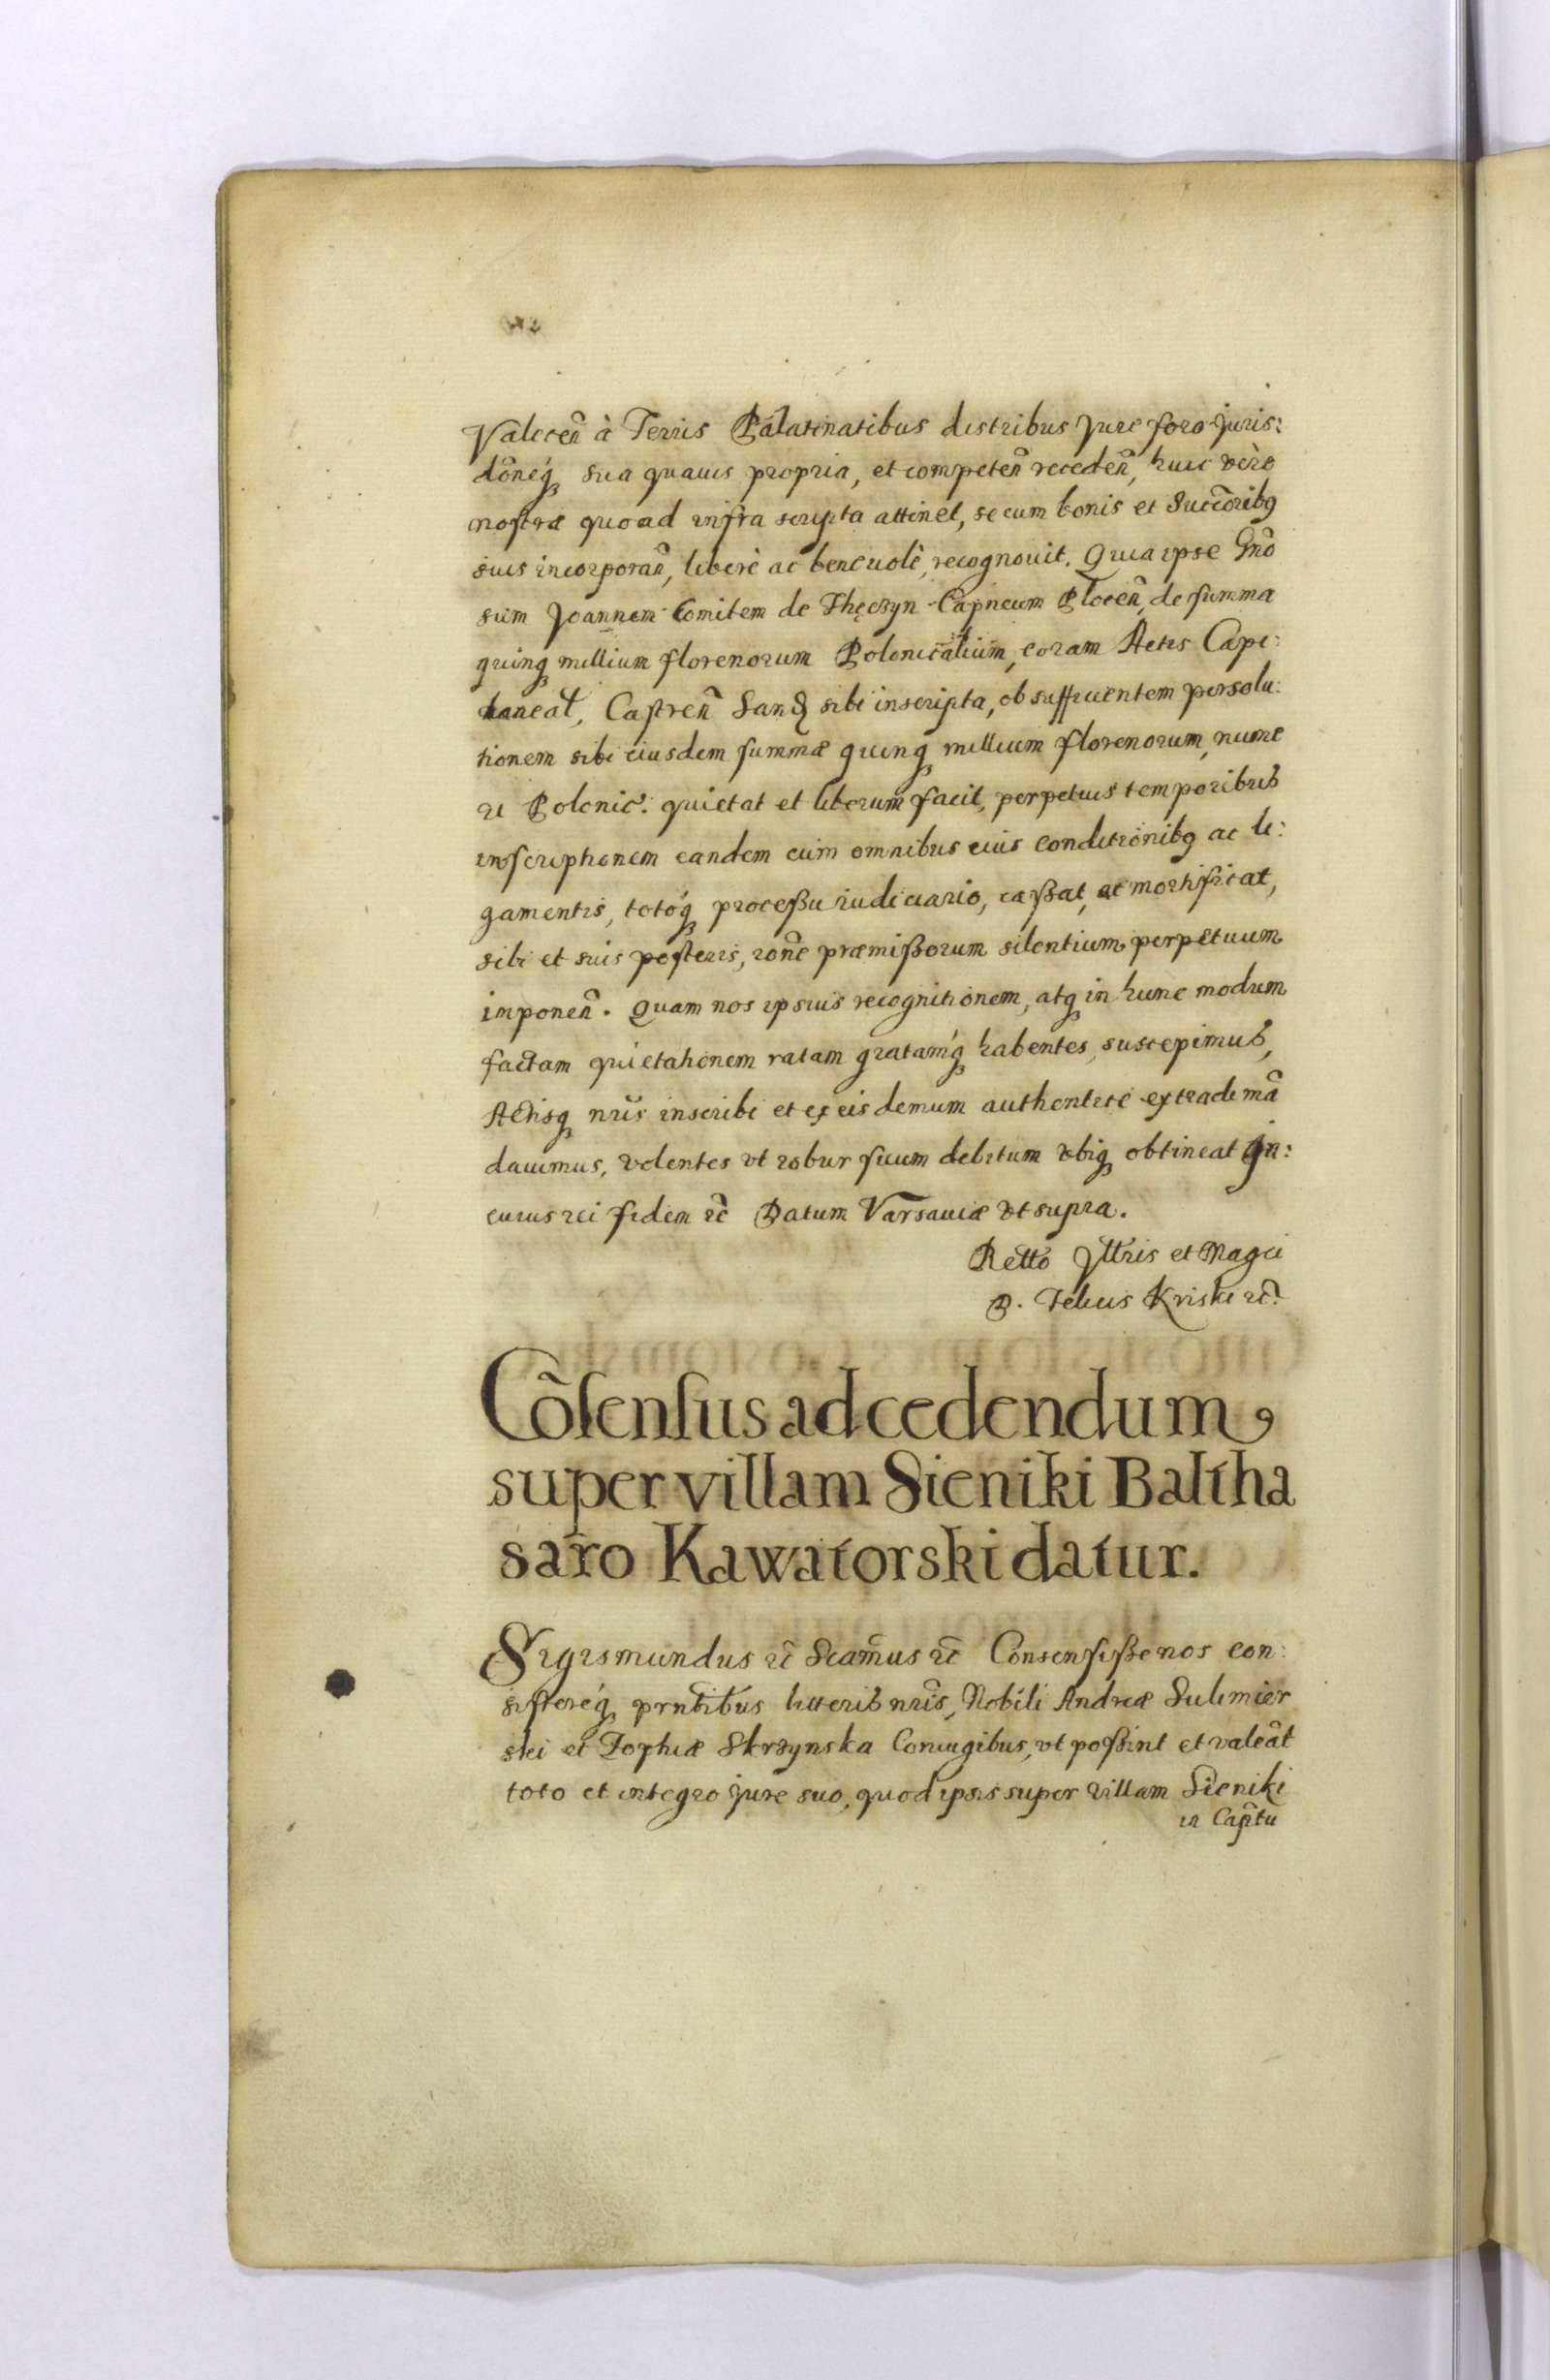 Valecen̄ à Terris Palatinatibus districtibus Jure foro juris:
dōneq́ꝫ sua quauis propria, et competen̄ receden̄, huic vèro
nostræ quoad infra scripta attinet, se cum bonis et Succōribꝫ
suis incorporan̄, liberè ac beneuolè, recognouit. Quia ipse Gn̄o
sum Joannem Comitem de Thęczyn Capneum Plocen̄, de summa
quinqꝫ millium florenorum Polonicalium, coram Actis Capi:
taneal, Castren̄ Sandꝫ sibi inscripta, ob sufficientem persolu:
tionem sibi eiusdem summæ quinqꝫ millium florenorum, nume
ri Polonic: quietat et liberum facit, perpetuis temporibus
inscriptionem eandem cum omnibus eius conditionibꝫ ac li:
gamentis, totóqꝫ processu iudiciario, cassat, ac mortificat,
sibi et suis posteris, rōne præmissorum silentium perpetuum
imponen̄. Quam nos ipsius recognitionem, atqꝫ in hunc modum
factam quietationem ratam gratamq́ꝫ habentes, suscepimus,
Actisqꝫ nr̄is inscribi et ex eis demum authenticè extradi mā
dauimus, volentes vt robur suum debitum vbiqꝫ obtineat In:
cuius rei fidem rc̄ Datum Varsauiæ vt supra.
Rettō Jlltris et Magci
D. Felicis Kriski rc̄.
Cōsensus ad cedendum
super villam Sieniki Baltha
saro Kawatorski datur.
Sigismundus rc̄ Scam̄us rc̄ Consensisse nos con:
sistereq́ꝫ prn̄tibus litteris nr̄is, Nobili Andreæ Sulimier
ski et Zophiæ Skrzynska Coniugibus, vt possint et valeāt
toto et integro jure suo, quod ipsis super villam Sieniki
in Capn̄tu